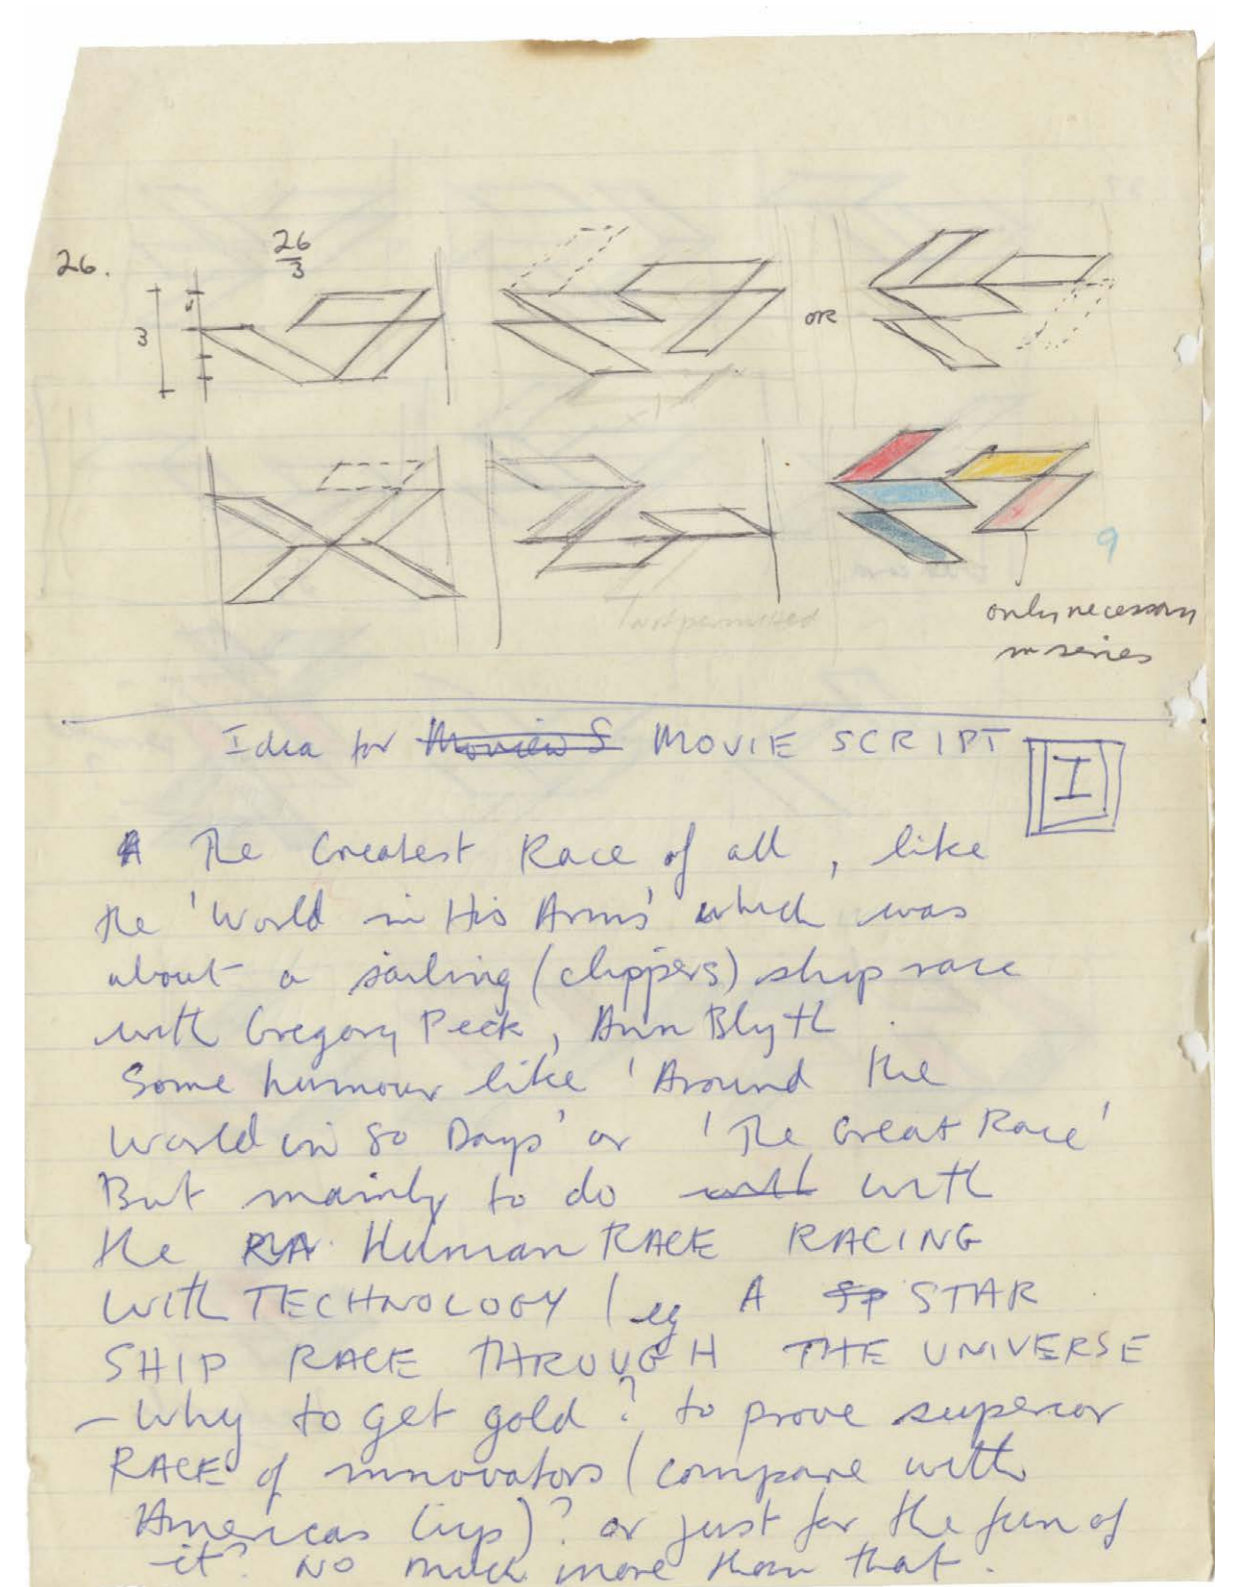 26.
26
3
3
OR
9
not permitted
only necessary
in series
Idea for Movie S MOVIE SCRIPT
I
A The Greatest Race of all, like
the 'World in His Arms' which was
about a sailing (clippers) ship race
with Gregory Peck, Ann Blyth.
Some humour like 'Around the
World in 80 Days' or 'The Great Race'
But mainly to do with with
the RA Human RACE RACING
with TECHNOLOGY (eg A Sp STAR
SHIP RACE THROUGH THE UNIVERSE
– Why to get gold? to prove superior
RACE of innovators (compare with
Americas Cup)? or just for the fun of
it? NO much more than that.